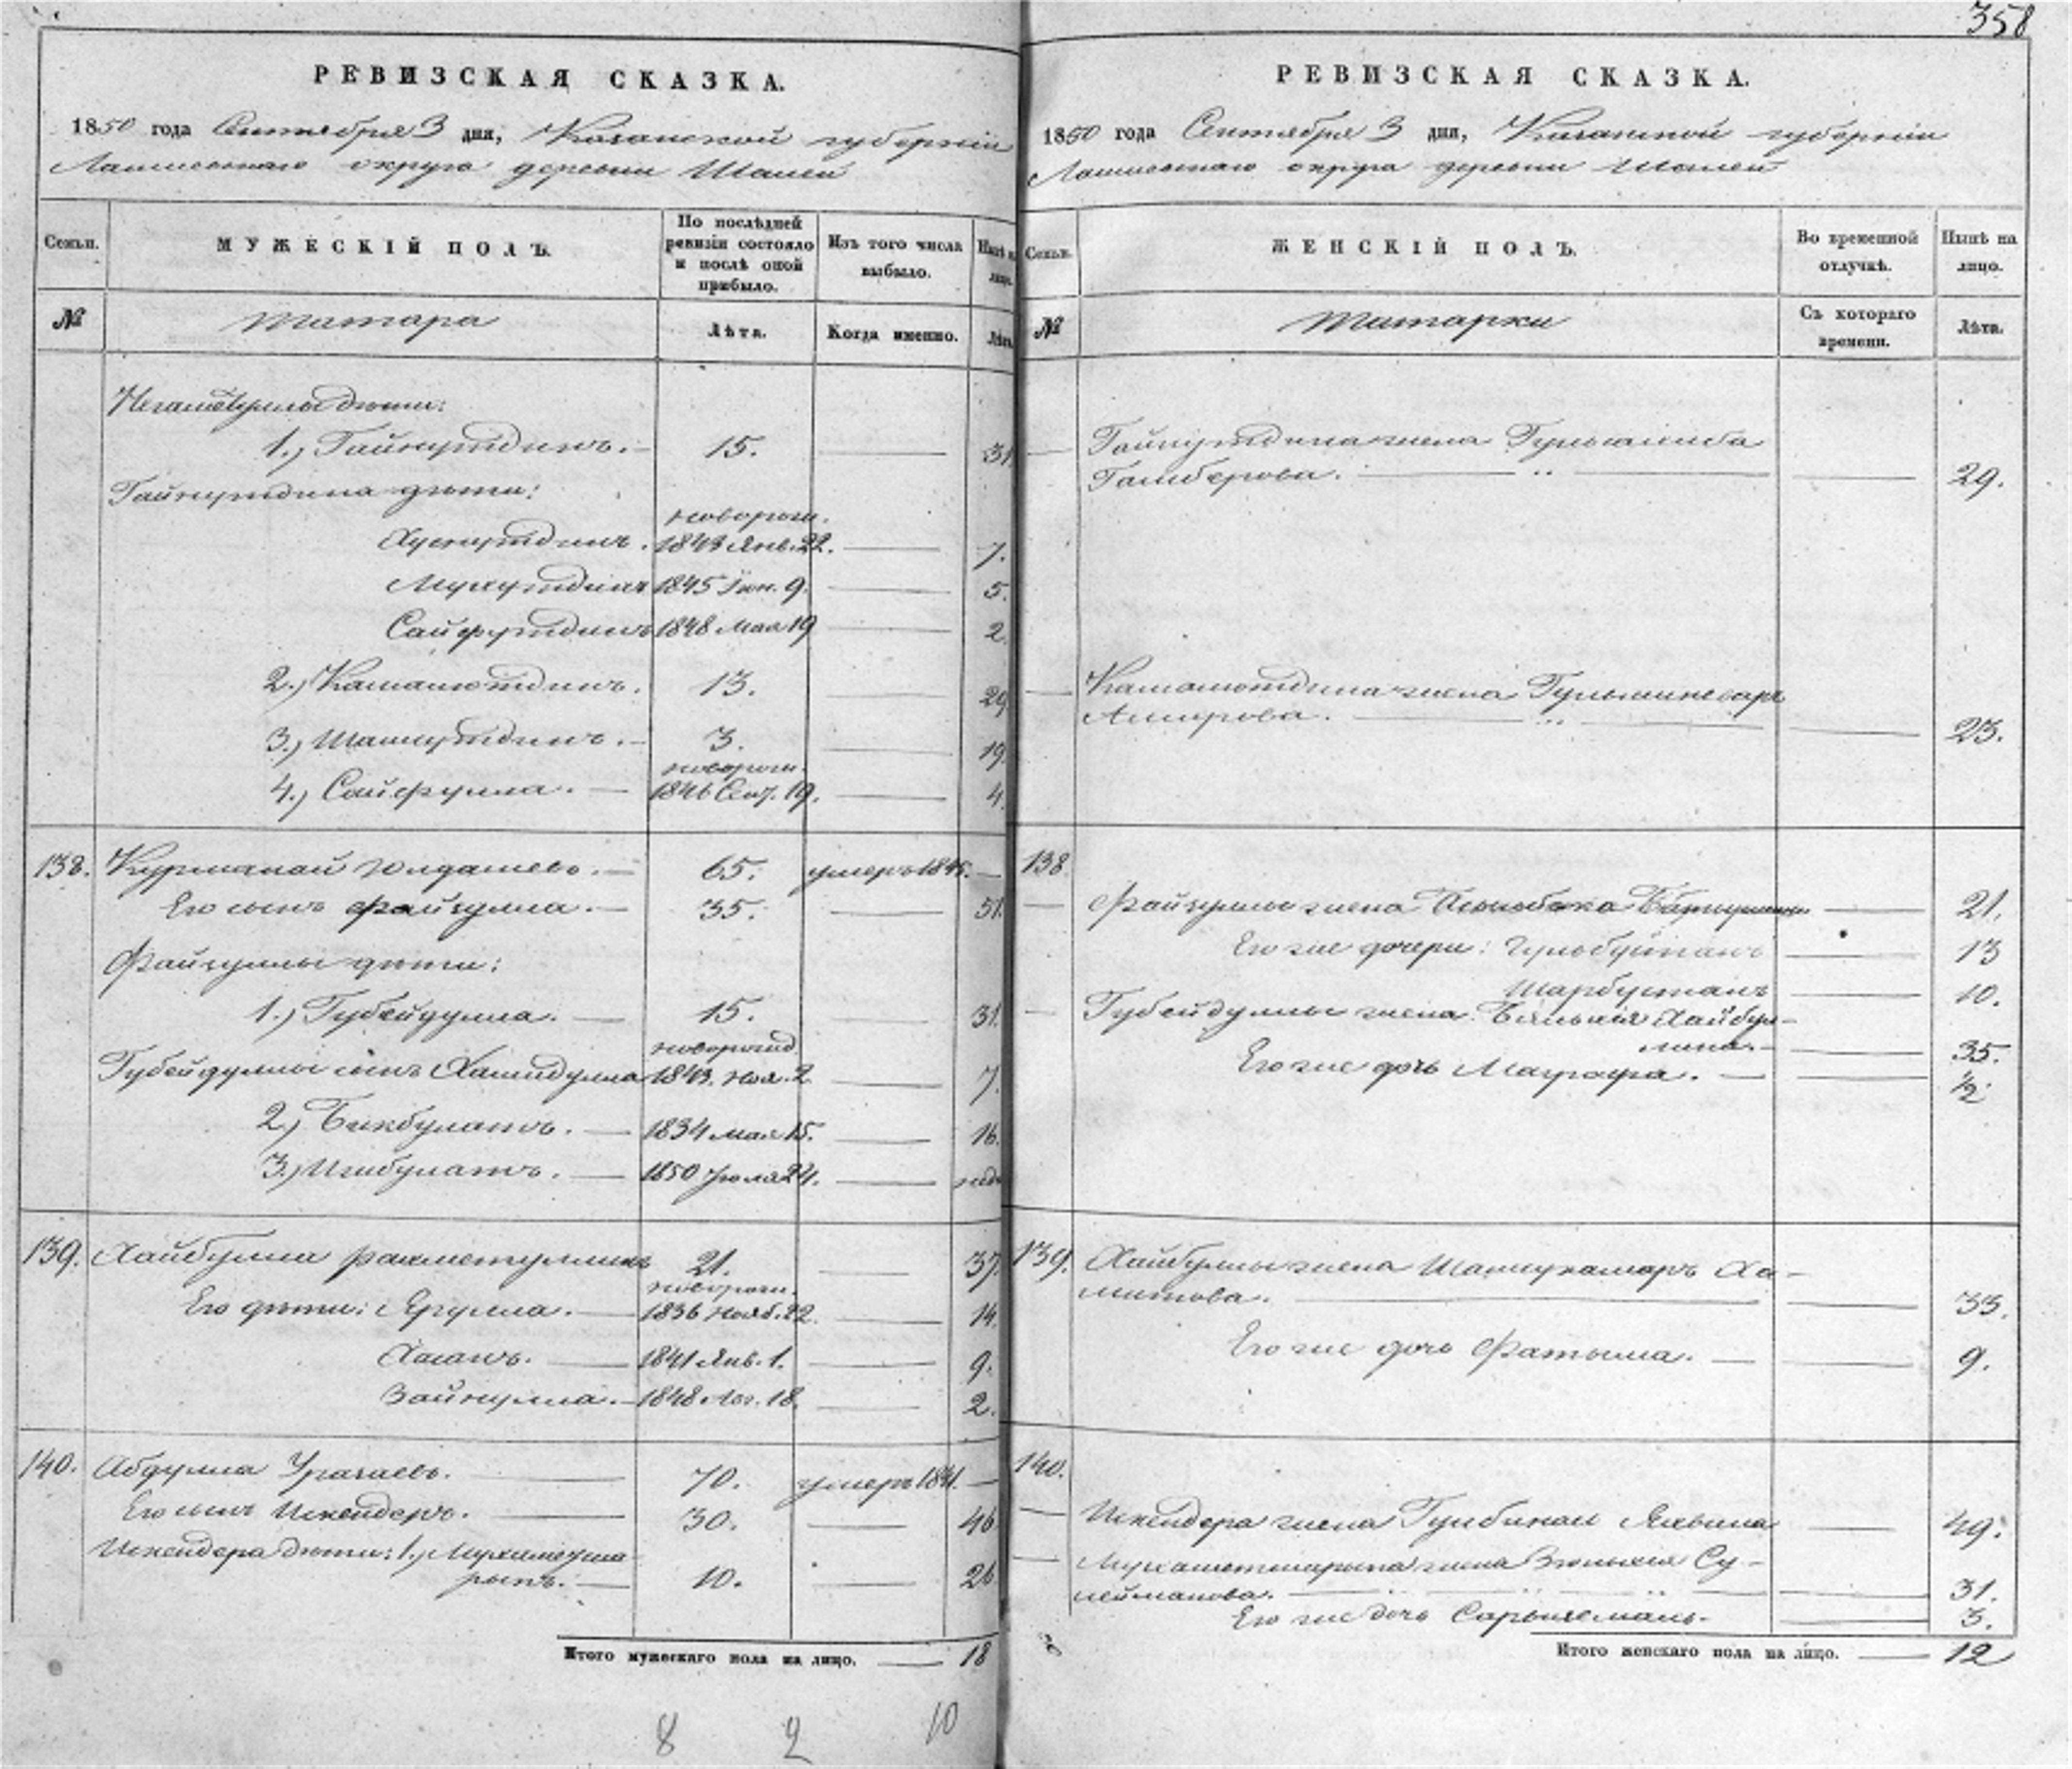 358
РЕВИЗСКАЯ СКАЗКА.
1850 года Сентября 3 дня, Казанской губернiи
Лаишевскаго округа деревни Шалей
Семьи.
МУЖЕСКIЙ ПОЛЪ.
По послѣдней ревизiи состояло и послѣ оной прибыло.
Изъ того числа выбыло.
Нынѣ на лицо.
№
Татара
Лѣта.
Когда именно.
Лѣта.
Негаметуллы дѣти:
1.) Гайнутдинъ. 15. 31.
Гайнутдина дѣти:
новорож.
Хуснутдинъ. 1843 Янв. 22. 7.
1845 Iюн. 9. 5.
Сайфутдинъ 1848 Мая 19 2
2.) Камалютдинъ. 13. 29
3.) Шамсутдинъ. 3. 19.
новорож.
4.) Сайфулла. 1846 Сент. 19. 4.
138. Курманай Юлдашевъ. 65. умеръ 1845.
Его сынъ Файзулла. 35. 51.
Файзуллы дѣти:
1.) Губейдулла. 15. 31.
новорожд.
Губейдуллы сынъ Хамидулла 1843. Ноя. 2 7.
2.) Бикбулатъ. 1834 мая 15. 16.
3.) Ишбулатъ. 1850 Iюля 24. нед.
139. Хайбулла Рахметуллинъ 21. 37.
новорож.
Его дѣти: Ярулла. 1836 Нояб. 22. 14.
Хасанъ. 1841 Янв. 1. 9.
Зайнулла. 1848 Авг. 18. 2.
140. Абдулла Уразаевъ. 70. умеръ 1841.
Его сынъ Искендеръ. 30. 46
Искендера дѣти: 1.) Мухаметша-
рыпъ. 10. 26.
Итого мужескаго пола на лицо. 18
8 2 10
РЕВИЗСКАЯ СКАЗКА.
1850 года Сентября 3 дня, Казанской губернiи
Лаишевскаго округа деревни Шалей
Семьи.
ЖЕНСКIЙ ПОЛЪ.
Во временной отлучкѣ.
Нынѣ на лицо.
№
Татарки
Съ котораго времени.
Лѣта.
Гайнутдина жена
29.
Камалютдина жена
Амирова. 23.
138.
Файзуллы жена 21.
Его же дочери: Гульбустанъ 13
Шарбустанъ 10.
Губейдуллы жена Хайбул-
лина. 35.
Его же дочь Магрифа. ½
139. Хайбуллы жена Шамсукамаръ Ха-
митова. 33.
Его же дочь Фатыма. 9.
140.
Искендера жена 49.
Мухаметшарыпа жена Су-
лейманова. 31.
Его же дочь 3.
Итого женскаго пола на лицо. 12